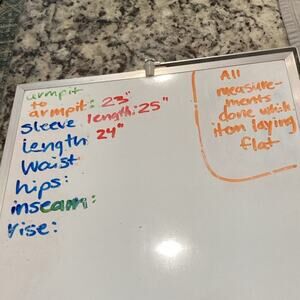 armpit
to
armpit: 23"
sleeve length: 25"
length 24"
waist
hips:
inseam:
rise:
All
measure-
ments
done while
item laying
flat